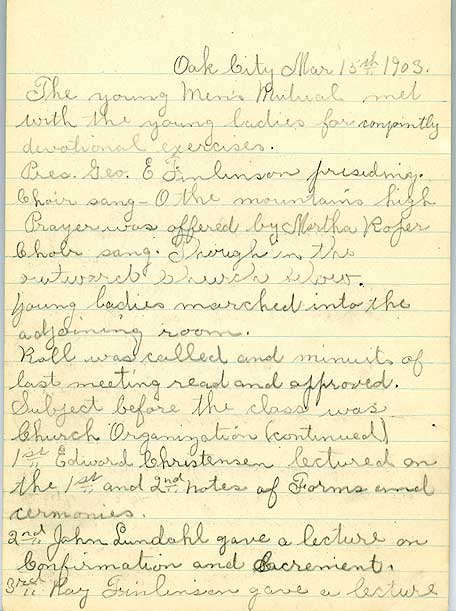 Oak City Mar 15th 1903.
The young Men's Mutual met
with the young ladies for conjointly
devotional exercises.
Pres. Geo. E Finlinson presiding.
Choir sang - O the mountains high
Prayer was offered by Martha Roper
Choir sang. Though in the
outward Church below.
Young ladies marched into the
adjoining room.
Roll was called and minuits of
last meeting read and approved.
Subject before the class was
Church Organization (continued)
1st Edward Christensen lectured on
the 1st and 2nd notes of Forms and
cermonies.
2nd John Lundahl gave a lecture on
Confirmation and Sacrement.
3rd Ray Finlinson gave a lecture